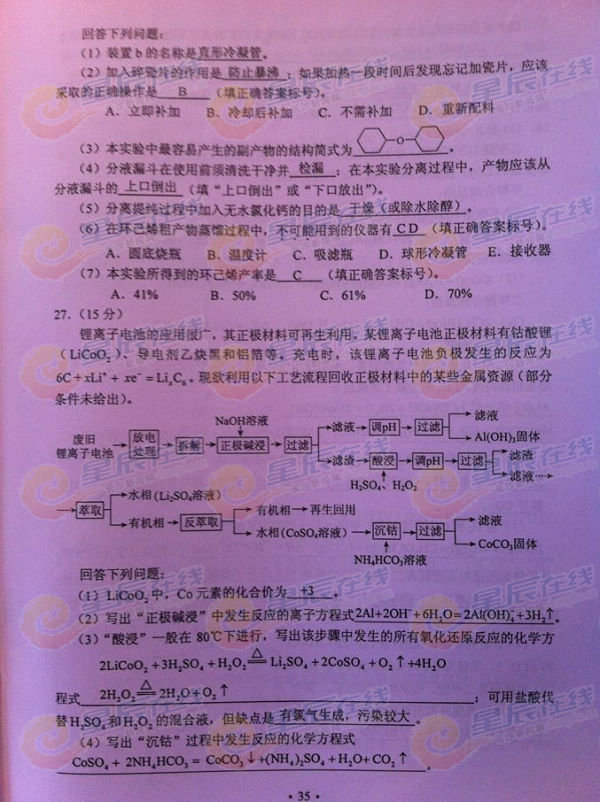 回答下列问题：
（1）装置b的名称是直形冷凝管。
（2）加入碎瓷片的作用是 防止暴沸 ；如果加热一段时间后发现忘记加瓷片，应该
采取的正确操作是 B （填正确答案标号）。
A．立即补加 B．冷却后补加 C．不需补加 D．重新配料
（3）本实验中最容易产生的副产物的结构简式为 O 。
（4）分液漏斗在使用前须清洗干净并 检漏 ；在本实验分离过程中，产物应该从
分液漏斗的 上口倒出 （填“上口倒出”或“下口放出”）。
（5）分离提纯过程中加入无水氯化钙的目的是 干燥（或除水除醇） 。
（6）在环己烯粗产物蒸馏过程中，不可能用到的仪器有 C D （填正确答案标号）。
A．圆底烧瓶 B．温度计 C．吸滤瓶 D．球形冷凝管 E．接收器
（7）本实验所得到的环己烯产率是 C （填正确答案标号）。
A．41% B．50% C．61% D．70%
27.（15分）
锂离子电池的应用很广，其正极材料可再生利用。某锂离子电池正极材料有钴酸锂
（LiCoO₂）、导电剂乙炔黑和铝箔等。充电时，该锂离子电池负极发生的反应为
6C + xLi⁺ + xe⁻ = LiₓC₆。现欲利用以下工艺流程回收正极材料中的某些金属资源（部分
条件未给出）。
NaOH溶液
废旧锂离子电池 → 放电处理 → 拆解 → 正极碱浸 → 过滤
滤液 → 调pH → 过滤 → 滤液
Al(OH)₃固体
滤渣 → 酸浸 → 调pH → 过滤 → 滤渣
滤液 ⋯
H₂SO₄、H₂O₂
→ 萃取 → 水相（Li₂SO₄溶液）
有机相 → 反萃取 → 有机相 → 再生回用
水相（CoSO₄溶液） → 沉钴 → 过滤 → 滤液
CoCO₃固体
NH₄HCO₃溶液
回答下列问题：
（1）LiCoO₂中，Co元素的化合价为 +3 。
（2）写出“正极碱浸”中发生反应的离子方程式2Al+2OH⁻+6H₂O=2Al(OH)₄⁻+3H₂↑。
（3）“酸浸”一般在80℃下进行，写出该步骤中发生的所有氧化还原反应的化学方
2LiCoO₂ +3H₂SO₄ +H₂O₂ △= Li₂SO₄ +2CoSO₄ +O₂↑+4H₂O
程式 2H₂O₂ △= 2H₂O+O₂↑ ；可用盐酸代
替H₂SO₄和H₂O₂的混合液，但缺点是 有氯气生成，污染较大 。
（4）写出“沉钴”过程中发生反应的化学方程式
CoSO₄ + 2NH₄HCO₃ = CoCO₃↓+(NH₄)₂SO₄ +H₂O+ CO₂↑ 。
· 35 ·
星辰在线